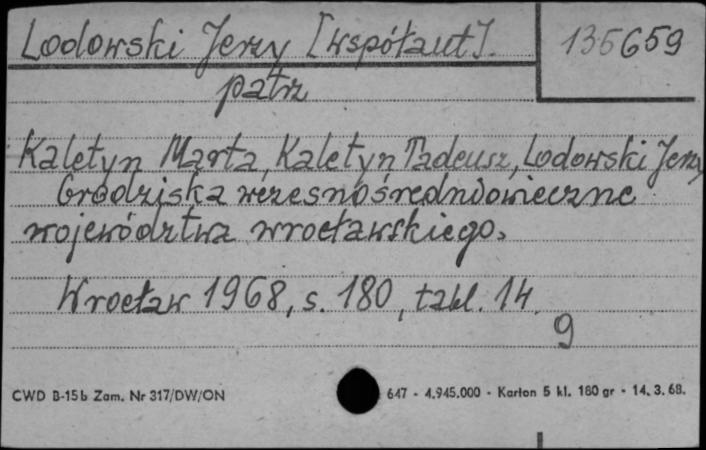 Lodowski Jerzy [współaut]. 135659
patrz
Kaletyn Marta, Kaletyn Tadeusz, Lodowski Jerzy
Grodziska wczesnośredniowieczne
województwa wrocławskiego.
Wrocław 1968, s. 180, tabl. 14.
9
CWD B-15b Zam. Nr 317/DW/ON 647 - 4.945.000 - Karton 5 kl. 180 gr - 14.3.68.